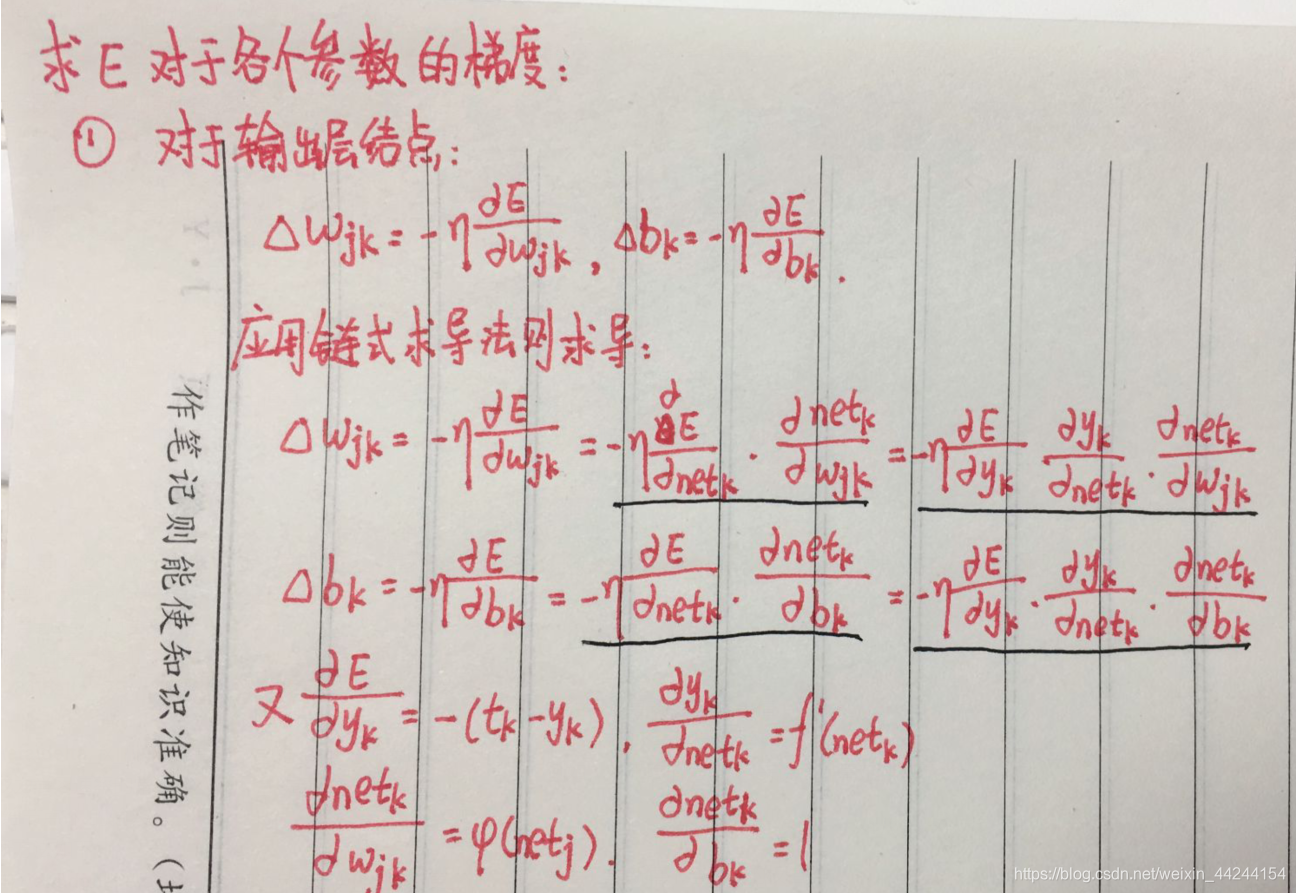 求E对于各个参数的梯度:
① 对于输出层结点:
Δwjk = -η ∂E/∂wjk , Δbk = -η ∂E/∂bk .
应用链式求导法则求导:
Δwjk = -η ∂E/∂wjk = -η ∂E/∂netk · ∂netk/∂wjk = -η ∂E/∂yk ∂yk/∂netk · ∂netk/∂wjk
Δbk = -η ∂E/∂bk = -η ∂E/∂netk · ∂netk/∂bk = -η ∂E/∂yk · ∂yk/∂netk · ∂netk/∂bk
又 ∂E/∂yk = -(tk-yk) . ∂yk/∂netk = f'(netk)
∂netk/∂wjk = φ(netj) . ∂netk/∂bk = 1
作笔记则能使知识准确。(
https://blog.csdn.net/weixin_44244154